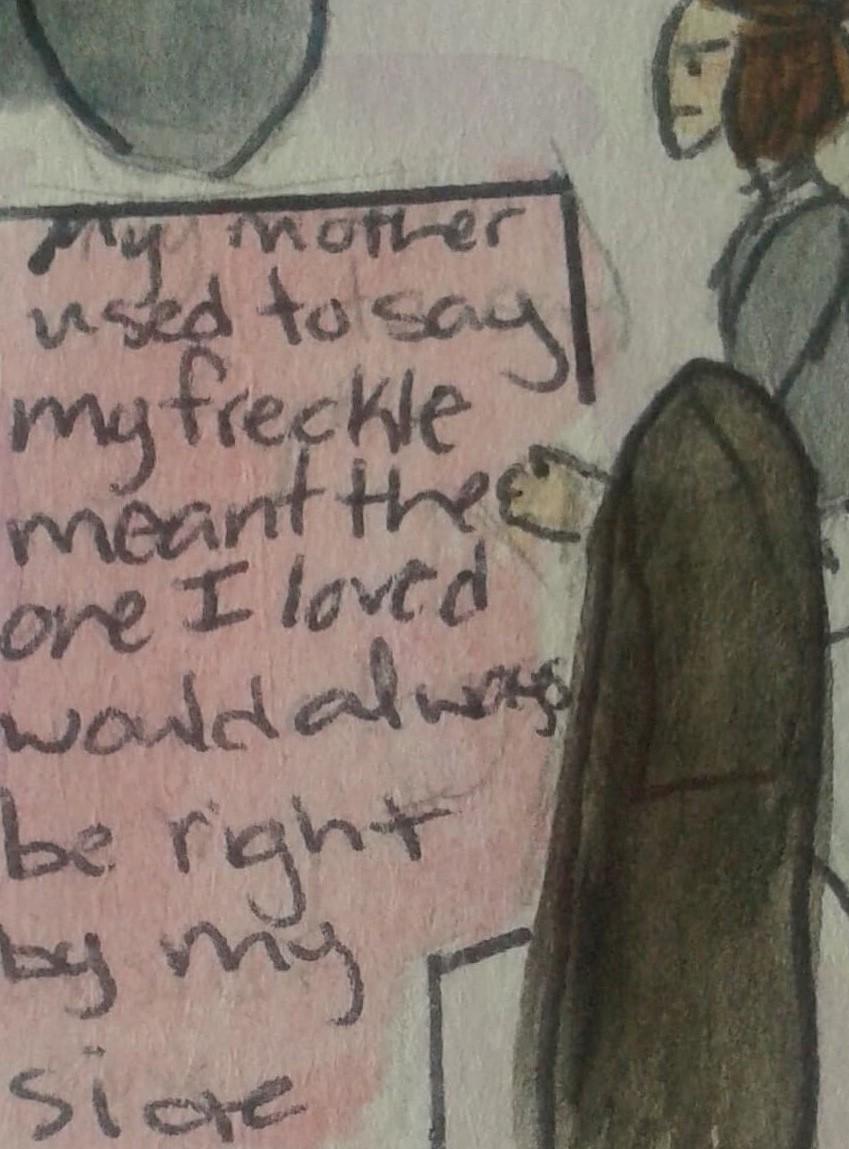 My mother
used to say
my freckle
meant the
one I loved
would always
be right
by my
side